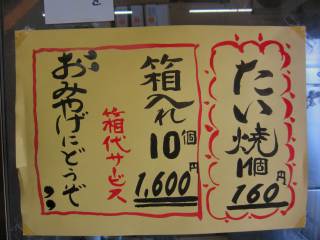 たい焼
1個
160円
箱入れ
10個
1,600円
箱代サービス
おみやげにどうぞ